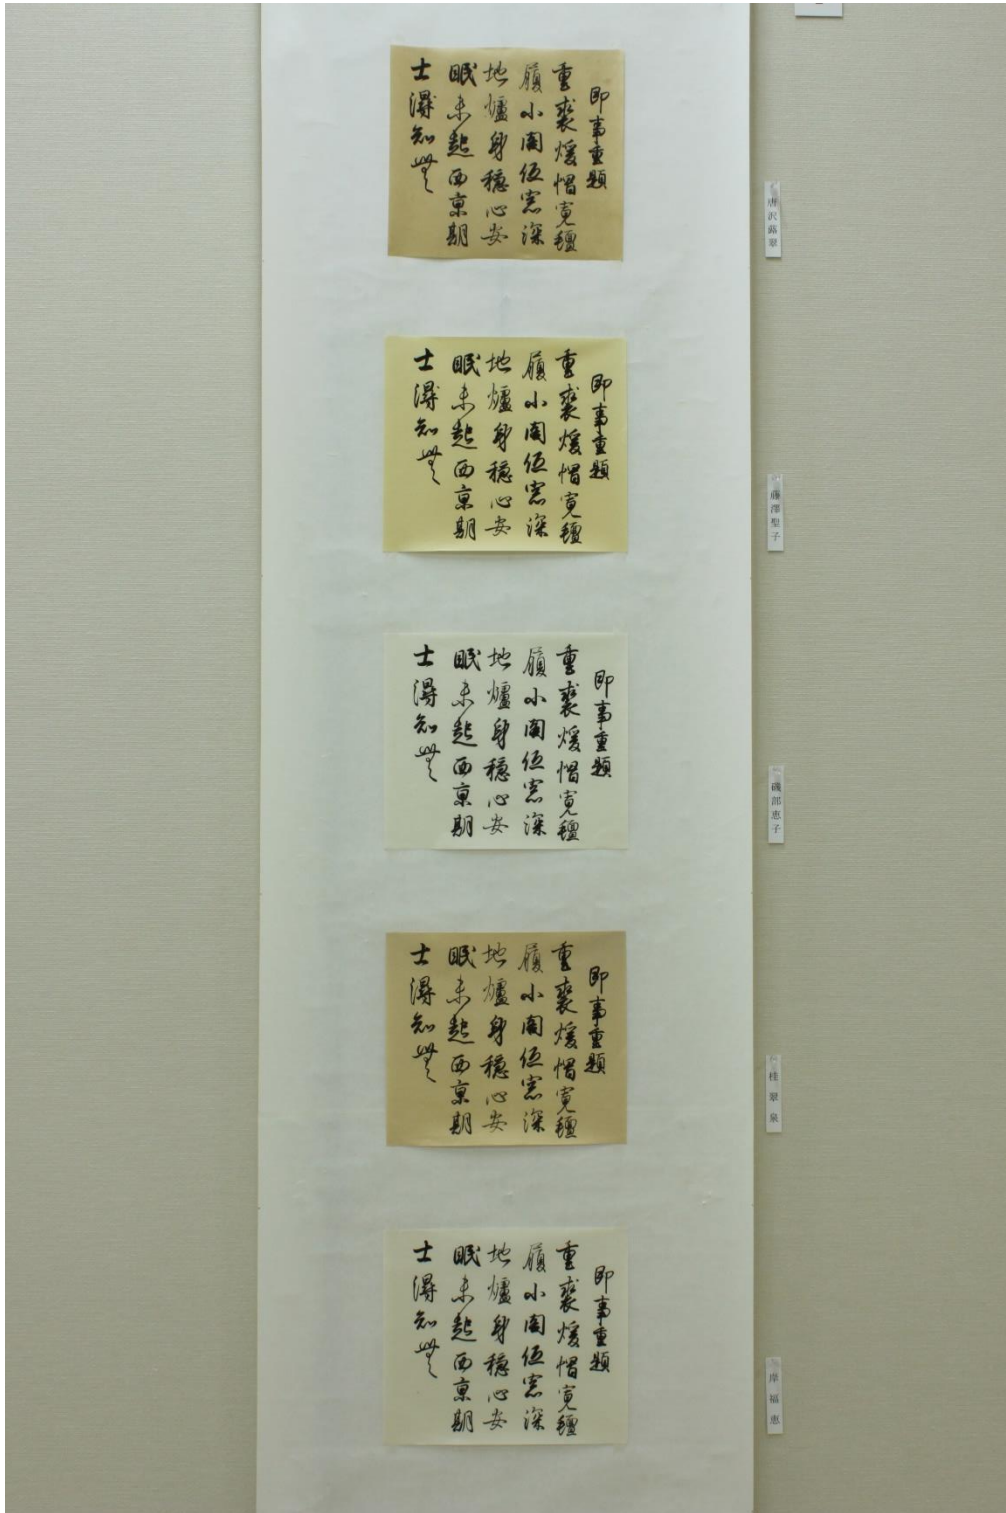 唐沢蕗翠
即事重題
重裘煖帽寛氊
履小閣低窓深
地爐身穏心安
眠未起西京朝
士得知無
藤澤聖子
即事重題
重裘煖帽寛氊
履小閣低窓深
地爐身穏心安
眠未起西京朝
士得知無
磯部恵子
即事重題
重裘煖帽寛氊
履小閣低窓深
地爐身穏心安
眠未起西京朝
士得知無
桂翠泉
即事重題
重裘煖帽寛氊
履小閣低窓深
地爐身穏心安
眠未起西京朝
士得知無
岸福恵
即事重題
重裘煖帽寛氊
履小閣低窓深
地爐身穏心安
眠未起西京朝
士得知無